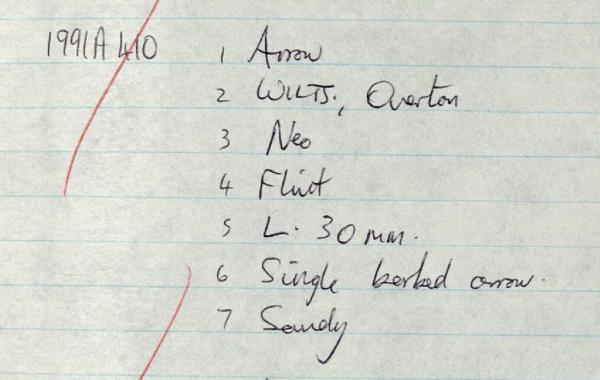 1991A 410 1 Arrow
2 WILTS., Overton
3 Neo
4 Flint
5 L. 30 mm.
6 Single barbed arrow.
7 Sandy